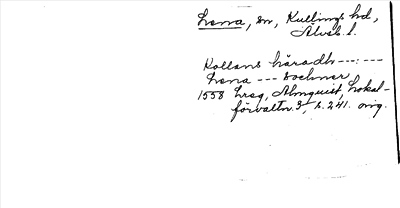 Lena, sn, Kullings hd,
Älvsb. l.
Kollans häradh ---:---
Lena --- sochner
1558 hrsg, Almquist, Lokal-
förvaltn. 3, s. 241. orig.